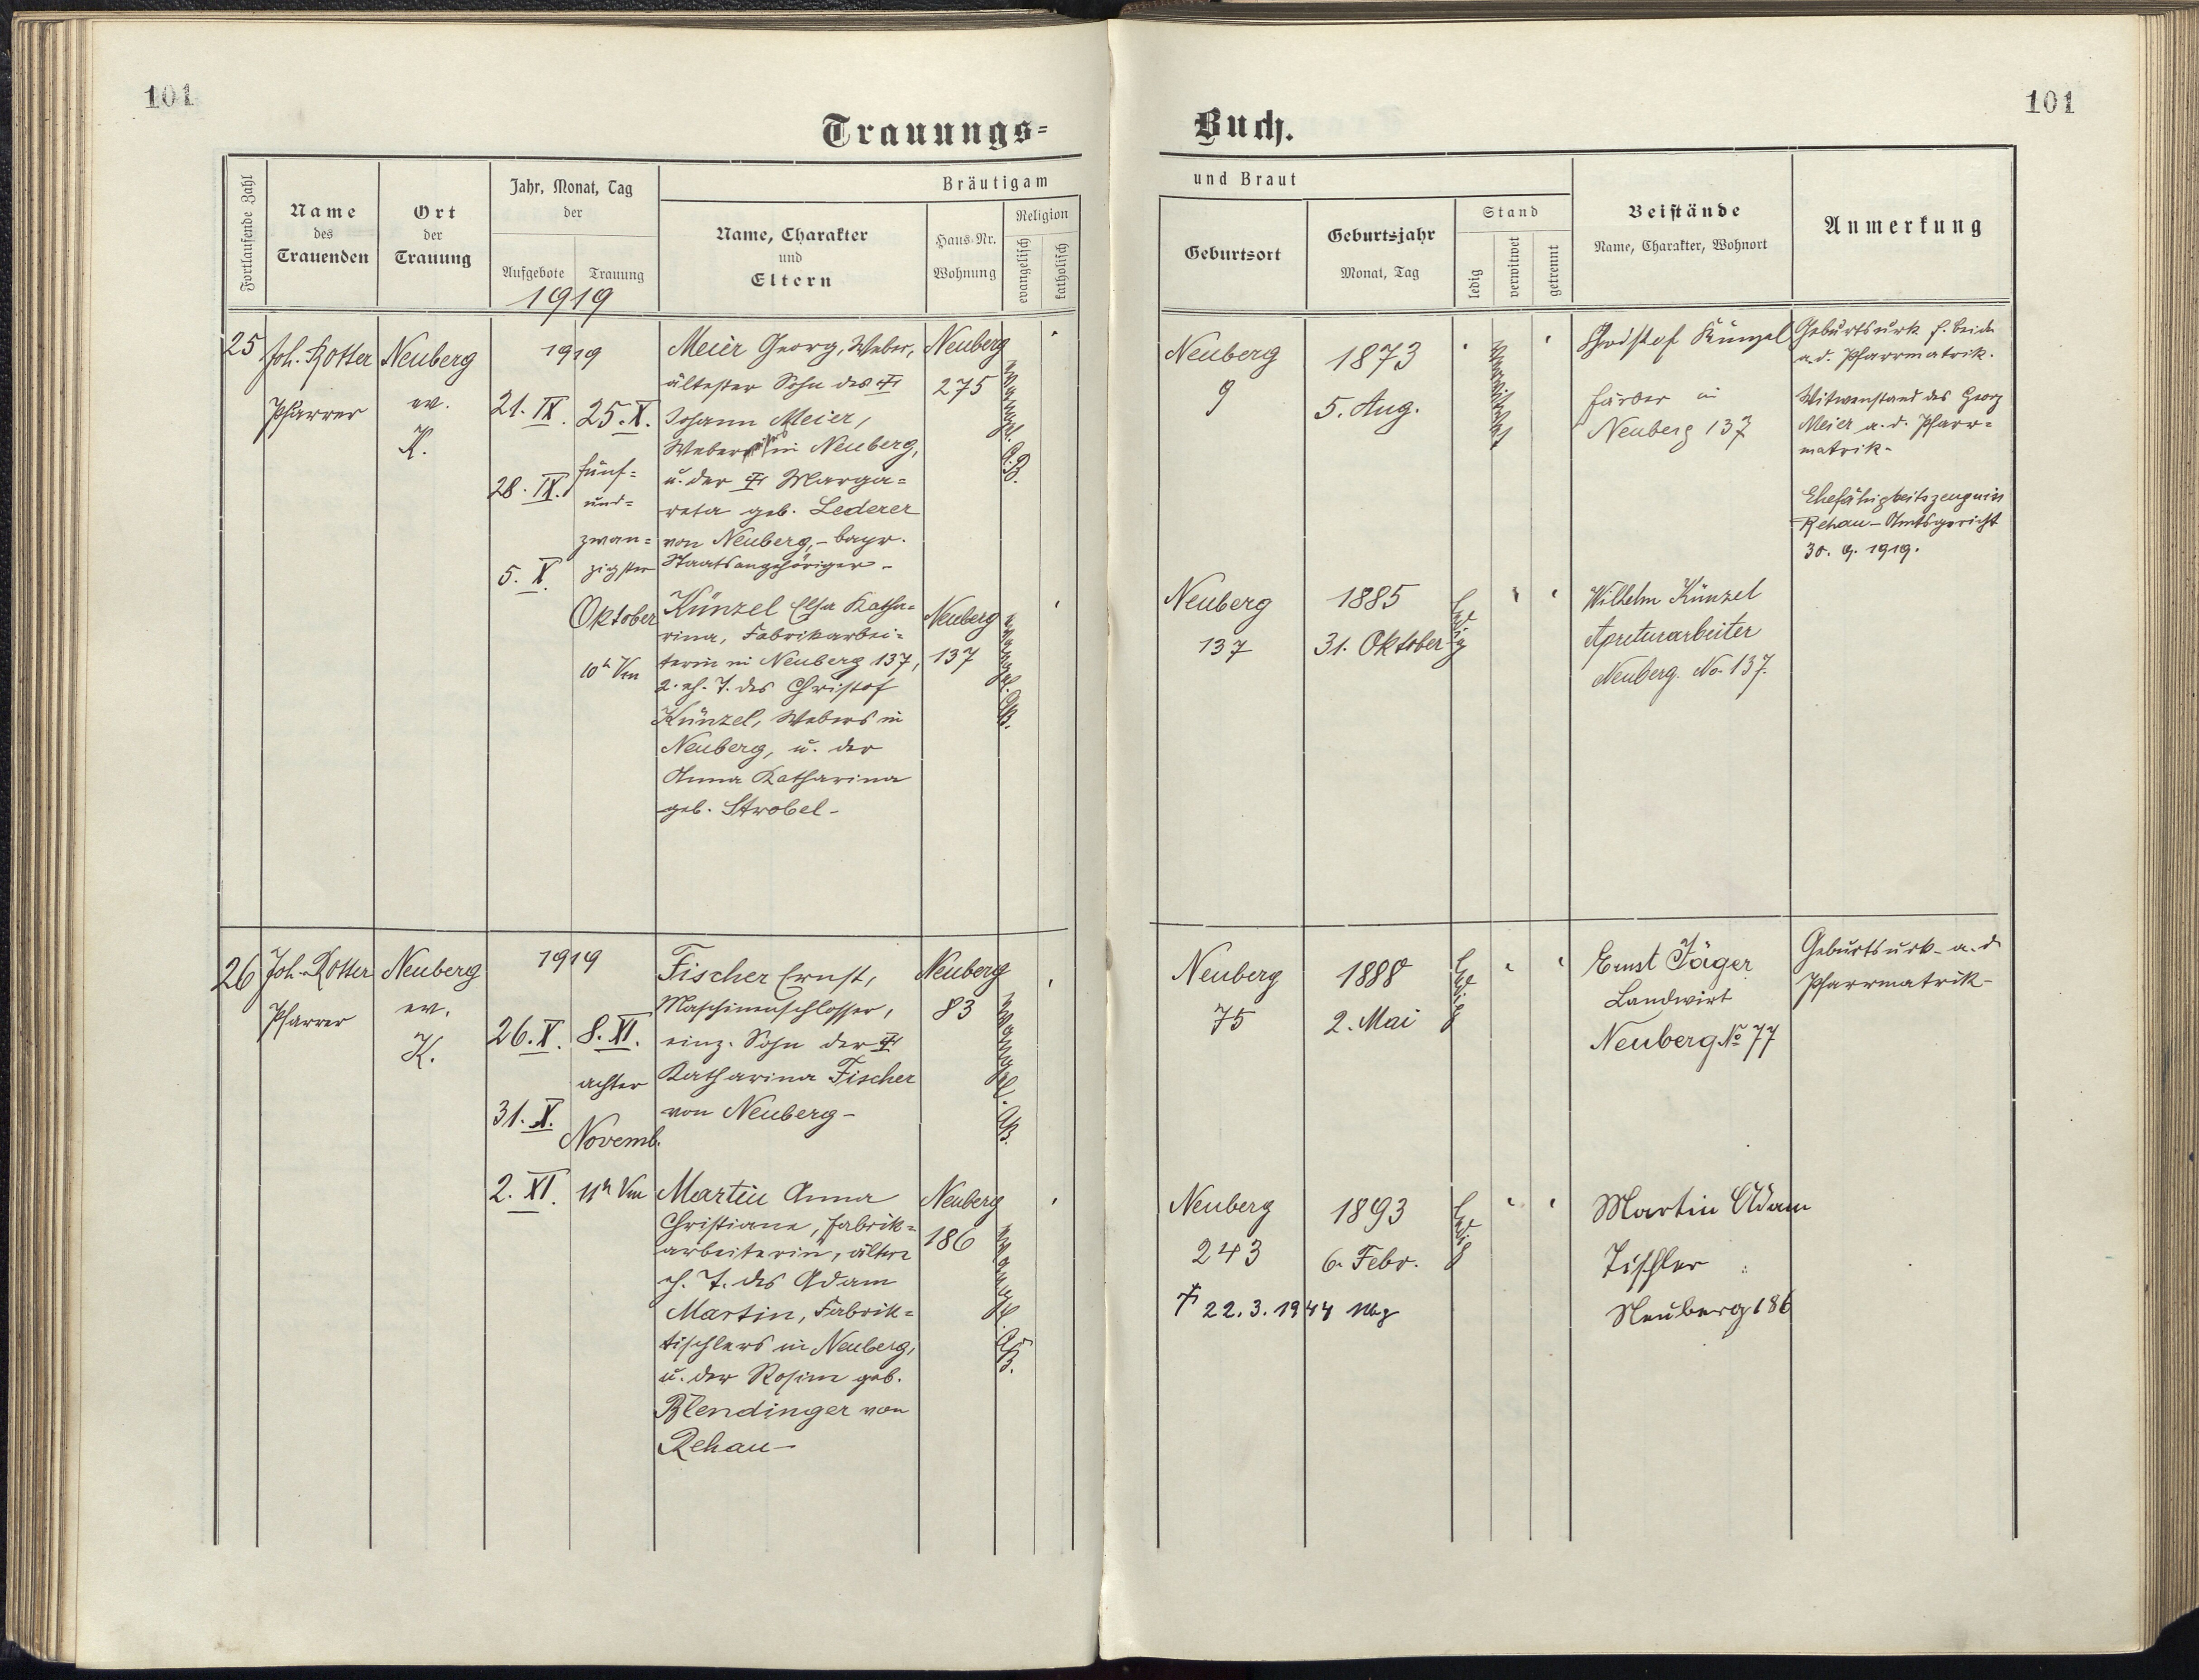 101
101
Trauungs=
Buch.
Fortlaufende Zahl
Name
des
Trauenden
Ort
der
Trauung
Jahr, Monat, Tag
der
Aufgebote
Trauung
1919
Bräutigam
Name, Charakter
und
Eltern
Haus-Nr.
Wohnung
Religion
evangelisch
katholisch
und Braut
Geburtsort
Geburtsjahr
Monat, Tag
Stand
ledig
verwitwet
getrennt
Beistände
Name, Charakter, Wohnort
Anmerkung
25
Joh. Rotter
Pfarrer
Neuberg
ev.
K.
1919
21. IX.
28. IX.
5. X.
25. X.
fünf=
und=
zwan=
zigster
Oktober
10h Vm
Meier Georg, Weber,
ältester Sohn des †
Johann Meier,
Webers in Neuberg,
u. der † Marga=
reta geb. Lederer
von Neuberg, - bayr.
Staatsangehöriger -
Neuberg
275
evangel. A.B.
Neuberg
9
1873
5. Aug.
verwitwet
Christof Künzel
Färber in
Neuberg 137
Geburtsurk f. beide
a. d. Pfarrmatrik.
Witwenstand des Georg
Meier a. d. Pfarr=
matrik -
Ehefähigkeitszeugnis
Rehau - Amtsgericht
30. 9. 1919.
Künzel Elsa Katha=
rina, Fabrikarbei=
terin in Neuberg 137,
2. eh. T. des Christof
Künzel, Webers in
Neuberg, u. der
Anna Katharina
geb. Strobel -
Neuberg
137
evangel. A.B.
Neuberg
137
1885
31. Oktober
ledig
Wilhelm Künzel
Apreturarbeiter
Neuberg. No. 137.
26
Joh. Rotter
Pfarrer
Neuberg
ev.
K.
1919
26. X.
31. X.
2. XI.
8. XI.
achter
Novemb.
11h Vm
Fischer Ernst,
Maschinenschlosser,
einz. Sohn der †
Katharina Fischer
von Neuberg -
Neuberg
83
evangel. A.B.
Neuberg
75
1888
2. Mai
ledig
Ernst Jäger
Landwirt
Neuberg No 77
Geburtsurk - a. d.
Pfarrmatrik -
Martin Anna
Christiane, Fabrik=
arbeiterin, ältere
eh. T. des Adam
Martin, Fabrik=
tischlers in Neuberg,
u. der Rosine geb.
Blendinger von
Rehau -
Neuberg
186
evangel. A.B.
Neuberg
243
† 22. 3. 1944 Nbg
1893
6. Febr.
ledig
Martin Adam
Tischler
Neuberg 186